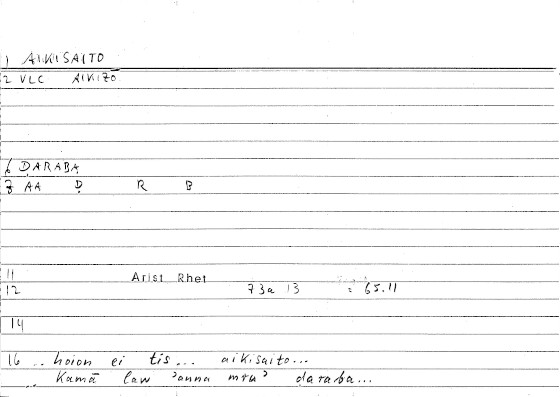 1 AIKISAITO
2 VLC AIKIZO
6 DARABA
8 AA D R B
11 Arist Rhet
12 73a 13 = 65.11
14
16 .. hoion ei tis... aikisaito...
.. Kamā law ʾanna mruʾ daraba...